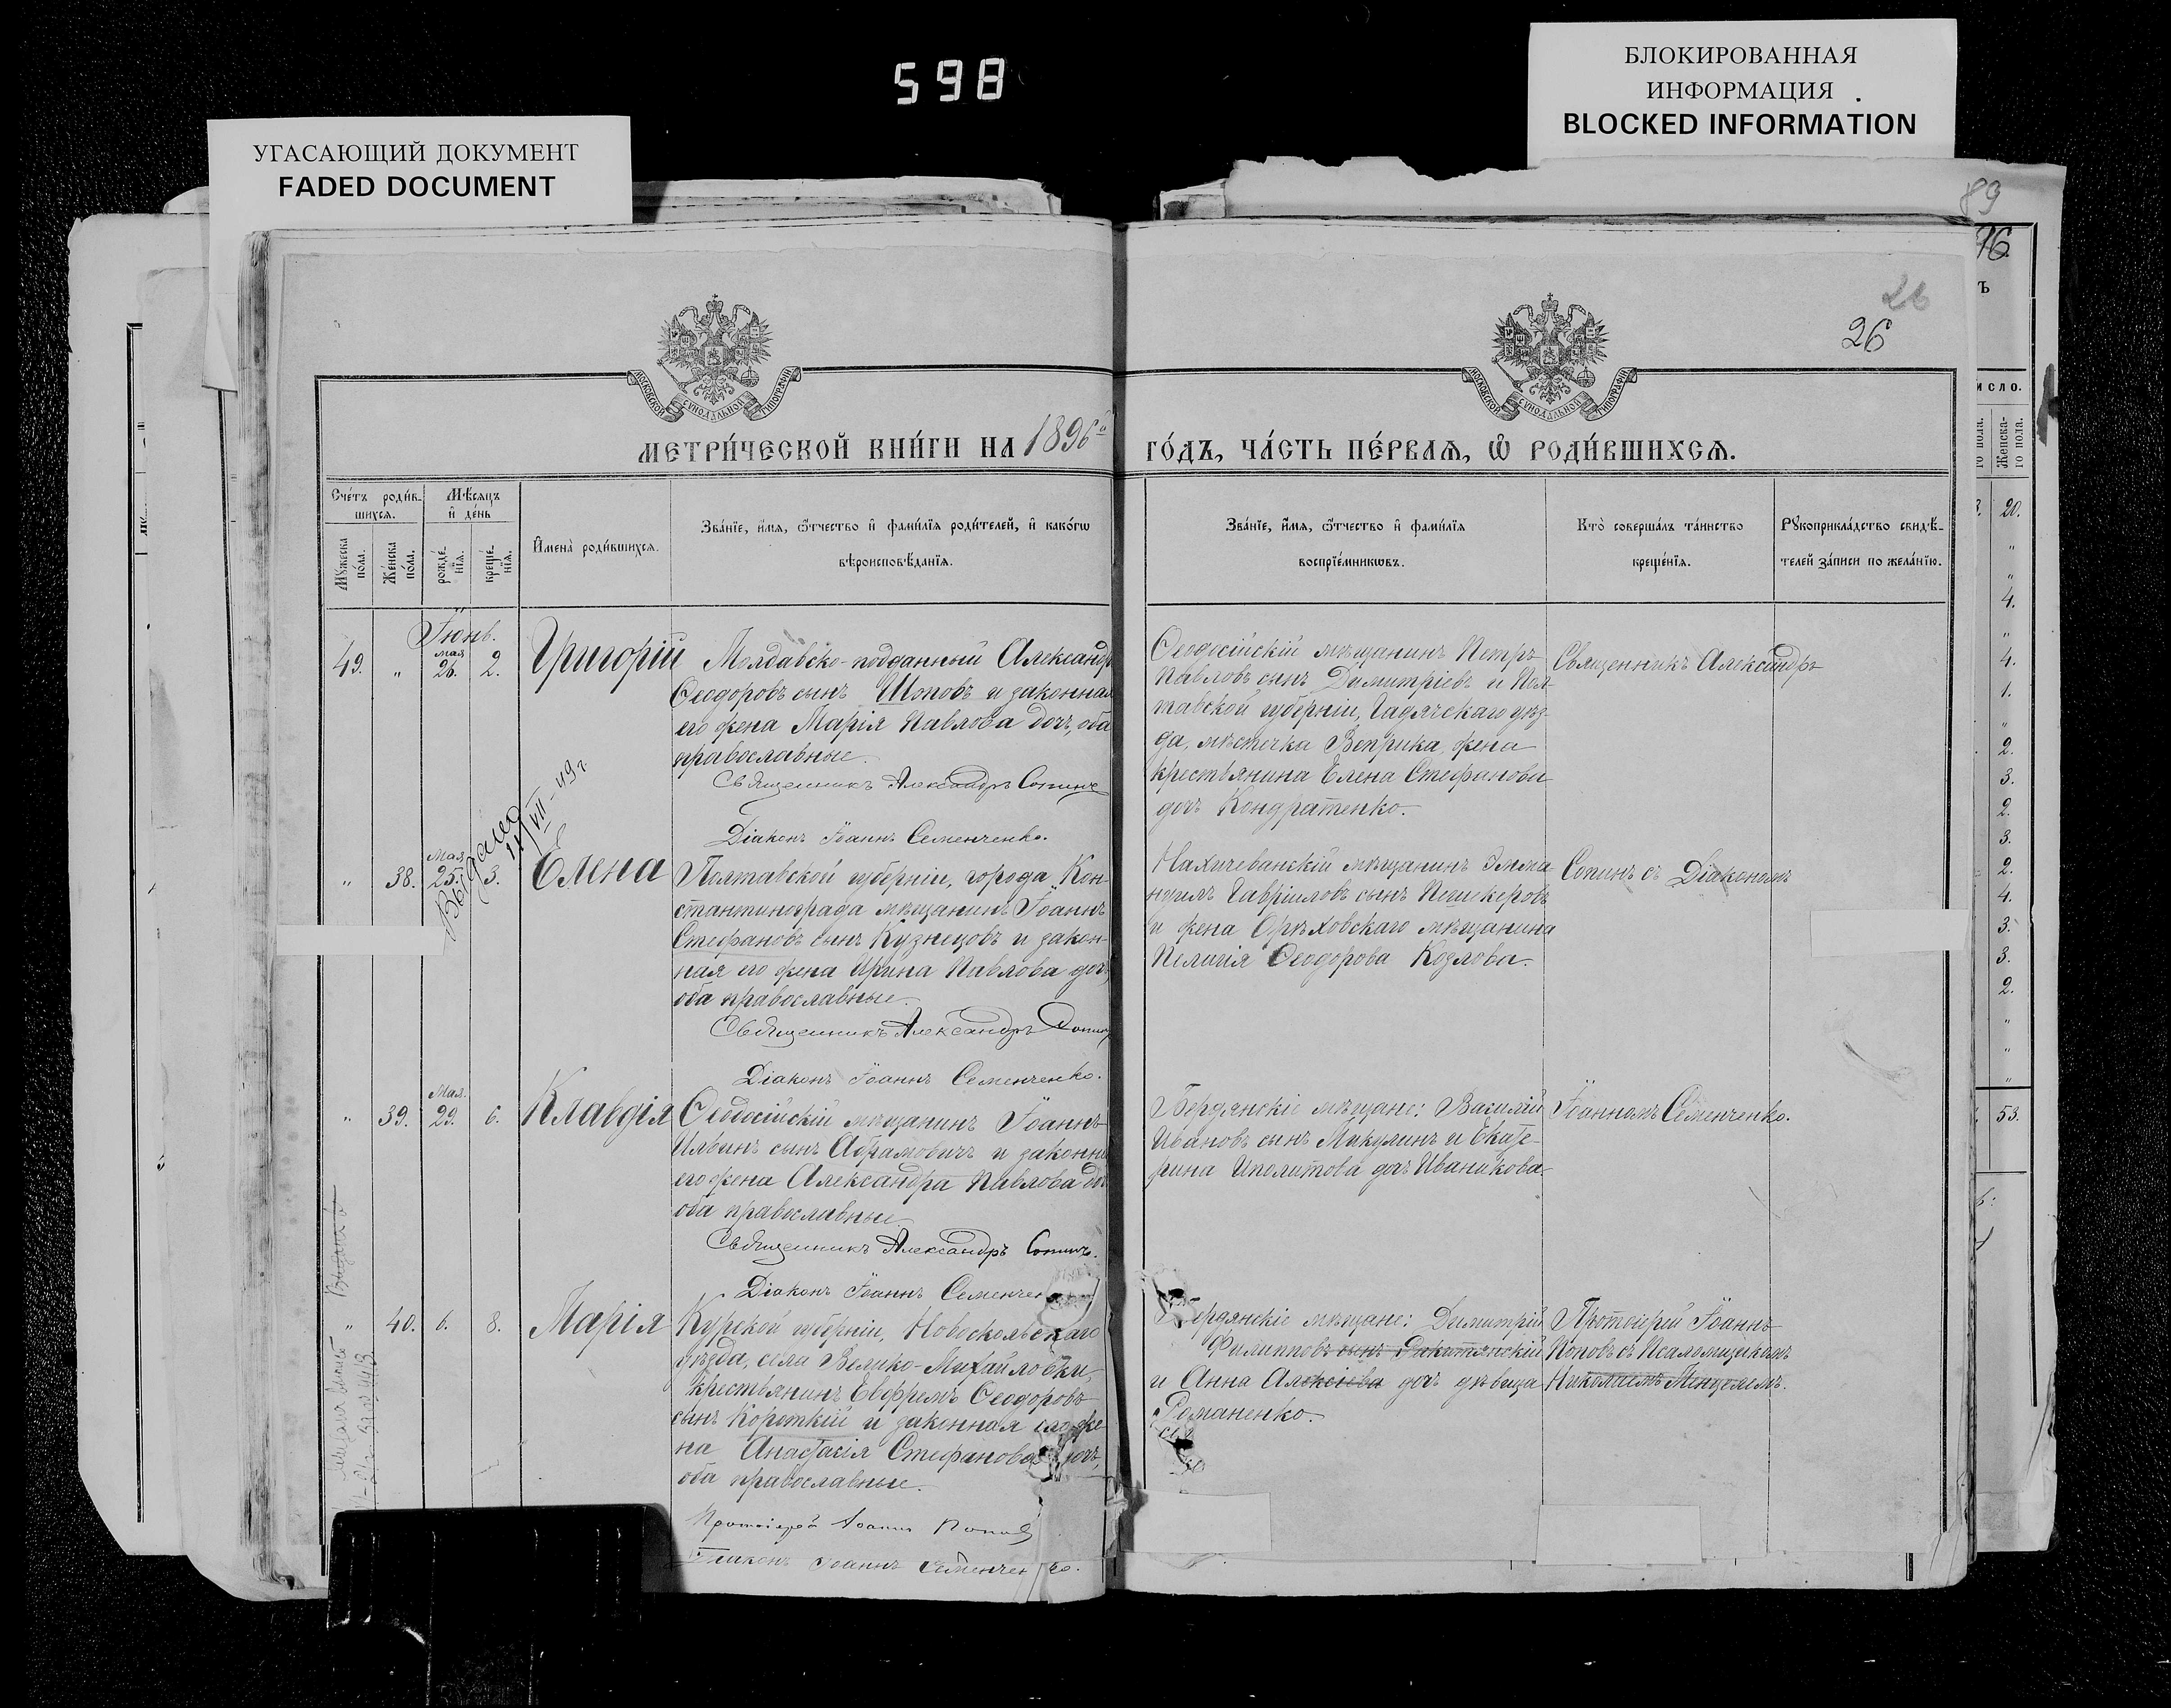 598
БЛОКИРОВАННАЯ
ИНФОРМАЦИЯ
BLOCKED INFORMATION
УГАСАЮЩИЙ ДОКУМЕНТ
FADED DOCUMENT
89
26
26
МОСКОВСКОЙ СѴНОДАЛЬНОЙ ТИПОГРАФІИ
МОСКОВСКОЙ СѴНОДАЛЬНОЙ ТИПОГРАФІИ
МЕТРИ́ЧЕСКОЙ КНИ́ГИ НА 1896й
ГО́ДЪ, ЧА́СТЬ ПЕ́РВАѦ, Ѡ҆ РОДИ́ВШИХСѦ.
Сче́тъ роди́в-
шихсѧ.
Мѣ́сѧцъ
и҆ де́нь
Мꙋ́жеска
по́ла.
Же́нска
по́ла.
рожде́-
нїѧ.
креще́-
нїѧ.
И҆мена̀ роди́вшихсѧ.
Зва́нїе, и҆́мѧ, ѻ҆́тчество и҆ фами́лїѧ роди́телей, и҆ како́гѡ
вѣроисповѣ́данїѧ.
Зва́нїе, и҆́мѧ, ѻ҆́тчество и҆ фами́лїѧ
воспрїе́мникѡвъ.
Кто̀ соверша́лъ та́инство
креще́нїѧ.
Рꙋкоприкла́дство свидѣ́-
телей за́писи по жела́нїю.
Іюнь.
49. " мая 26. 2. Григорій
Молдавско-подданный Александръ
Ѳеодоровъ сынъ Шоповъ и законная
его жена Марія Павлова дочь, оба
православные.
Священникъ Александръ Сопинъ
Діаконъ Іоаннъ Семенченко.
Ѳеодосійскій мѣщанинъ Петръ
Павловъ сынъ Димитріевъ и Пол-
тавской губерніи, Гадячскаго уѣз-
да, мѣстечка Веприка, жена
крестьянина Елена Стефанова
дочь Кондратенко.
Священникъ Александръ
Выдано
11/VII-49 г.
" 38. Мая 25. 3. Елена
Полтавской губерніи, города Кон-
стантинограда мѣщанинъ Іоаннъ
Стефановъ сынъ Кузнецовъ и закон-
ная его жена Ирина Павлова дочь,
оба православные.
Священникъ Александръ Сопинъ
Діаконъ Іоаннъ Семенченко.
Нахичеванскій мѣщанинъ Эмма-
нуилъ Гавріиловъ сынъ Пешекеровъ
и жена Орѣховскаго мѣщанина
Пелагія Ѳеодорова Козлова.
Сопинъ съ Діакономъ
" 39. Мая. 29. 6. Клавдія
Ѳеодосійскій мѣщанинъ Іоаннъ
Ильинъ сынъ Абрамовичъ и законная
его жена Александра Павлова дочь
оба православные.
Священникъ Александръ Сопинъ.
Діаконъ Іоаннъ Семенченко
Бердянскіе мѣщане: Василій
Ивановъ сынъ Микулинъ и Екате-
рина Иполитова дочь Иваникова
Іоанномъ Семенченко.
" 40. 6. 8. Марія
Курской губерніи, Новоскольскаго
уѣзда, села Велико-Михайловки,
крестьянинъ Евфремъ Ѳеодоровъ
сынъ Короткій и законная его же-
на Анастасія Стефанова дочь,
оба православные.
Протоіерей Іоаннъ Поповъ
Діаконъ Іоаннъ Семенченко.
Бердянскіе мѣщане: Димитрій
Филипповъ сынъ
и Анна Алексіева дочь дѣвица
Романенко.
Протоіерей Іоаннъ
Поповъ съ Псаломщикомъ
Николаемъ
число.
Женска-
го пола.
20.
4.
4.
1.
2.
3.
2.
3.
2.
4.
3.
3.
2.
53.